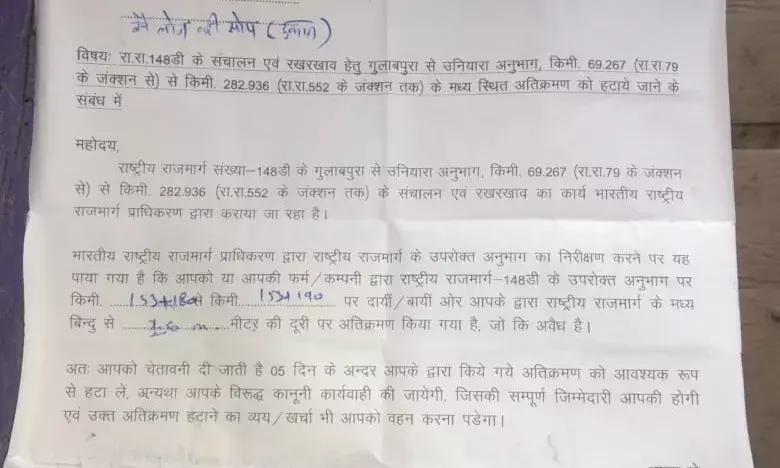 विषयः रा.रा.148डी के संचालन एवं रखरखाव हेतु गुलाबपुरा से उनियारा अनुभाग, किमी. 69.267 (रा.रा.79
के जंक्शन से) से किमी. 282.936 (रा.रा.552 के जंक्शन तक) के मध्य स्थित अतिक्रमण को हटाये जाने के
संबंध में
महोदय,
राष्ट्रीय राजमार्ग संख्या–148डी के गुलाबपुरा से उनियारा अनुभाग, किमी. 69.267 (रा.रा.79 के जंक्शन
से) से किमी. 282.936 (रा.रा.552 के जंक्शन तक) के संचालन एवं रखरखाव का कार्य भारतीय राष्ट्रीय
राजमार्ग प्राधिकरण द्वारा कराया जा रहा है।
भारतीय राष्ट्रीय राजमार्ग प्राधिकरण द्वारा राष्ट्रीय राजमार्ग के उपरोक्त अनुभाग का निरीक्षण करने पर यह
पाया गया है कि आपको या आपकी फर्म/कम्पनी द्वारा राष्ट्रीय राजमार्ग–148डी के उपरोक्त अनुभाग पर
किमी. 153+180 से किमी. 153+190 पर दायीं/बायीं ओर आपके द्वारा राष्ट्रीय राजमार्ग के मध्य
बिन्दु से मीटर की दूरी पर अतिक्रमण किया गया है, जो कि अवैध है।
अतः आपको चेतावनी दी जाती है 05 दिन के अन्दर आपके द्वारा किये गये अतिक्रमण को आवश्यक रूप
से हटा लें, अन्यथा आपके विरूद्ध कानूनी कार्यवाही की जायेगी, जिसकी सम्पूर्ण जिम्मेदारी आपकी होगी
एवं उक्त अतिक्रमण हटाने का व्यय/खर्चा भी आपको वहन करना पडेगा।